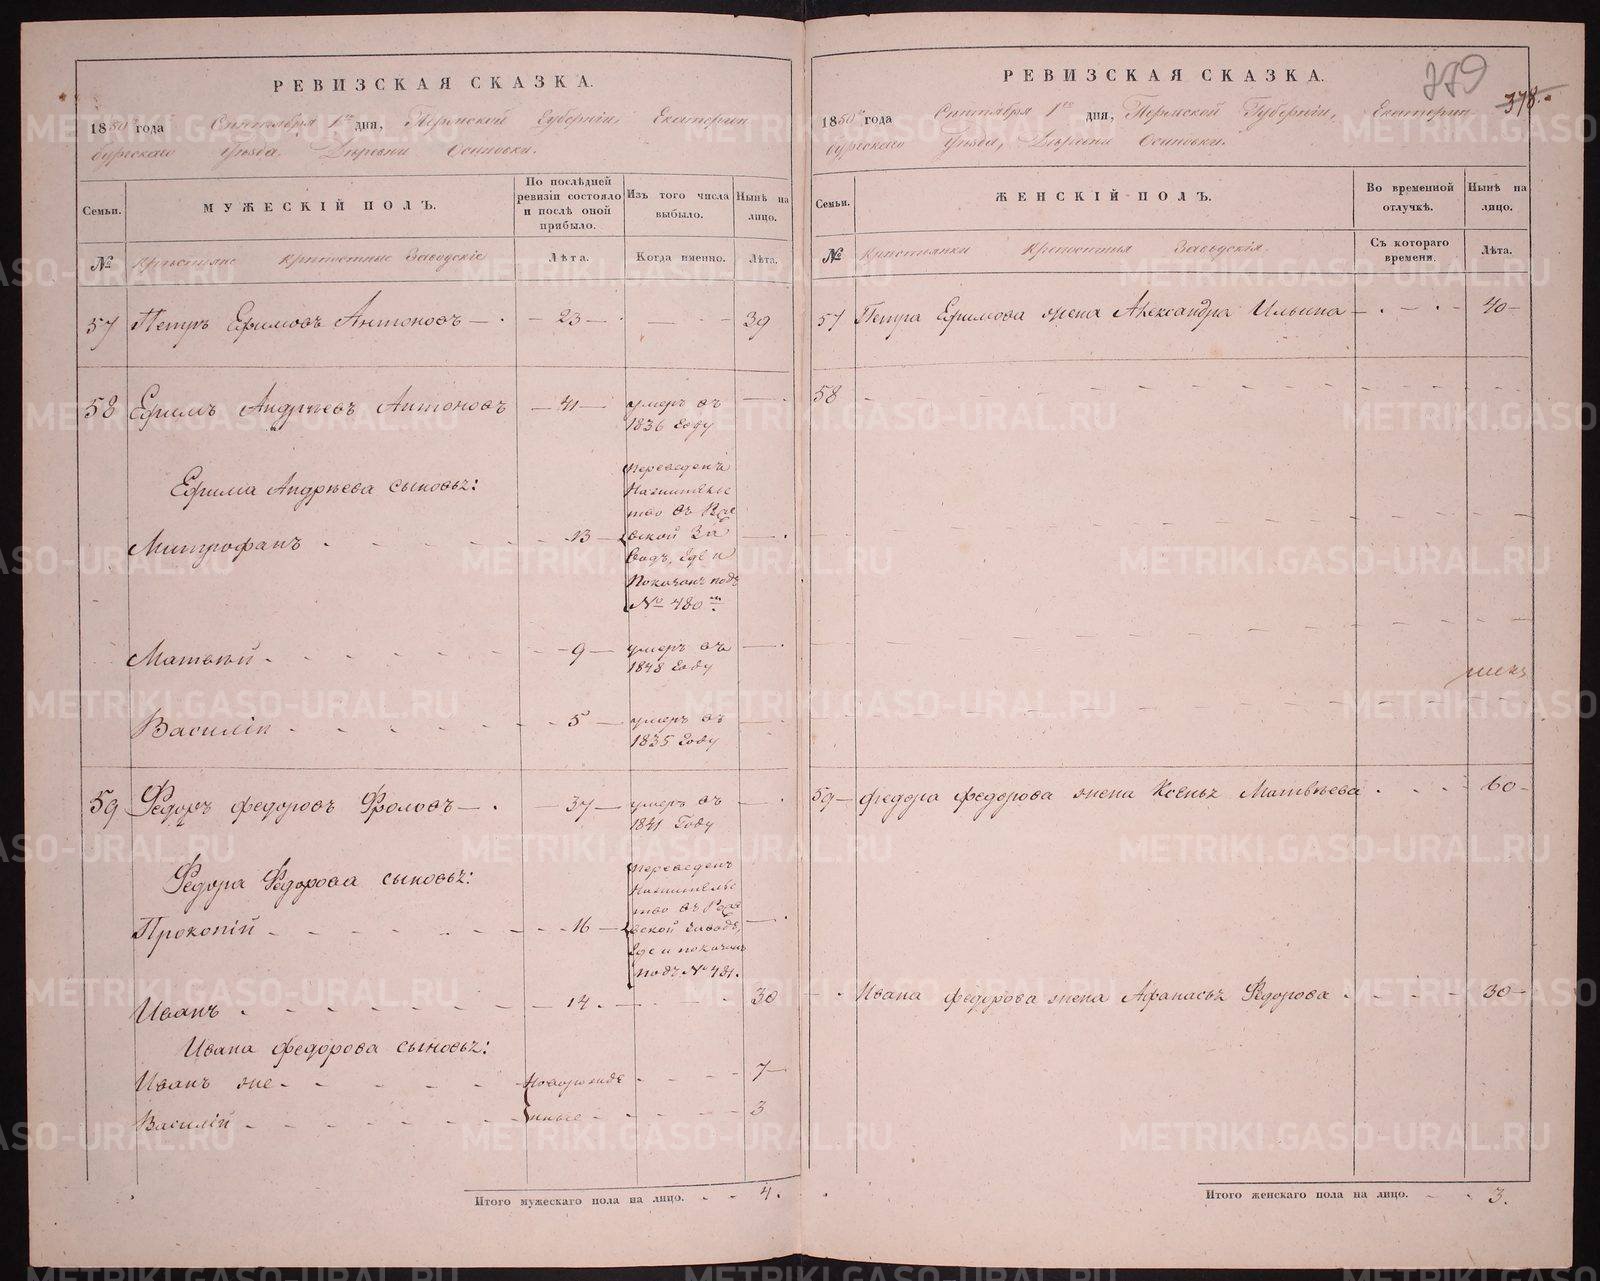 РЕВИЗСКАЯ СКАЗКА.
1850 года Сентября 1го дня, Пермской Губернии, Екатерин-
бургскаго Уѣзда, Деревни Осиновки.
Семьи.
МУЖЕСКІЙ ПОЛЪ.
По послѣдней ревизіи состояло и послѣ оной прибыло.
Изъ того числа выбыло.
Нынѣ на лицо.
№ Крестьяне крѣпостные Заводскіе
Лѣта.
Когда именно.
Лѣта.
57 Петръ Ефимовъ Антоновъ — 23 — 39
58 Ефимъ Андрѣевъ Антоновъ — 41 — умеръ въ
1836 Году
Ефима Андрѣева сыновьѧ:
Митрофанъ 13 Переведенъ
Нажителье
тво въ
вской За
водъ, Где и
Показанъ подъ
№ 480 м.
Матвѣй 9 умеръ въ
1848 Году
Василій 5 умеръ въ
1835 Году
59 Федоръ Федоровъ Фроловъ — 37 — умеръ въ
1841 Году
Федора Федорова сыновьѧ:
Прокопій 16 Переведенъ
Нажительс
тво въ
вской Заводъ,
Где и показанъ
подъ № 481.
Иванъ 14 30
Ивана Федорова сыновьѧ:
Иванъ же Новорожде 7
Василій нные 3
Итого мужескаго пола на лицо. 4.
РЕВИЗСКАЯ СКАЗКА.
379
378.
1850 года Сентября 1го дня, Пермской Губерніи, Екатерин-
бургскаго Уѣзда, Деревни Осиновки.
Семьи.
ЖЕНСКІЙ ПОЛЪ.
Во временной отлучкѣ.
Нынѣ на лицо.
№ Крестьянки Крепостныя Заводскія.
Съ котораго времени.
Лѣта.
57 Петра Ефимова жена Александра Ильина — 40
58
59 Федора Федорова жена Ксеньѧ Матвѣева 60
Ивана Федорова жена Афанасьѧ Федорова 30
Итого женскаго пола на лицо. 3.
METRIKI.GASO-URAL.RU